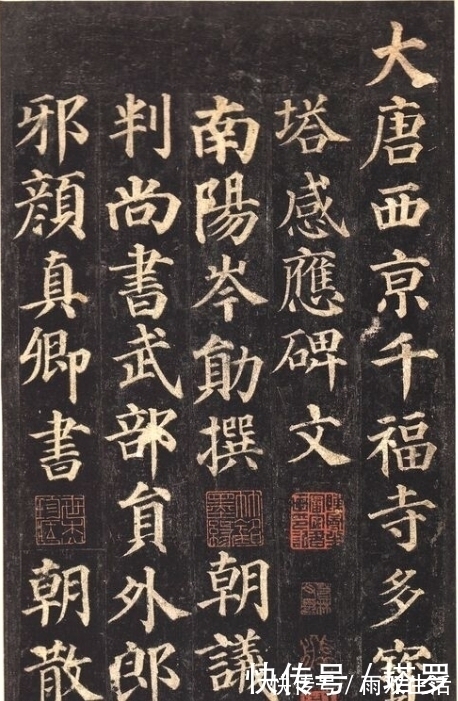 大唐西京千福寺多寶
塔感應碑文
南陽岑勛撰 朝議
判尚書武部員外郎
邪顏真卿書 朝散
快传号/
快传号/